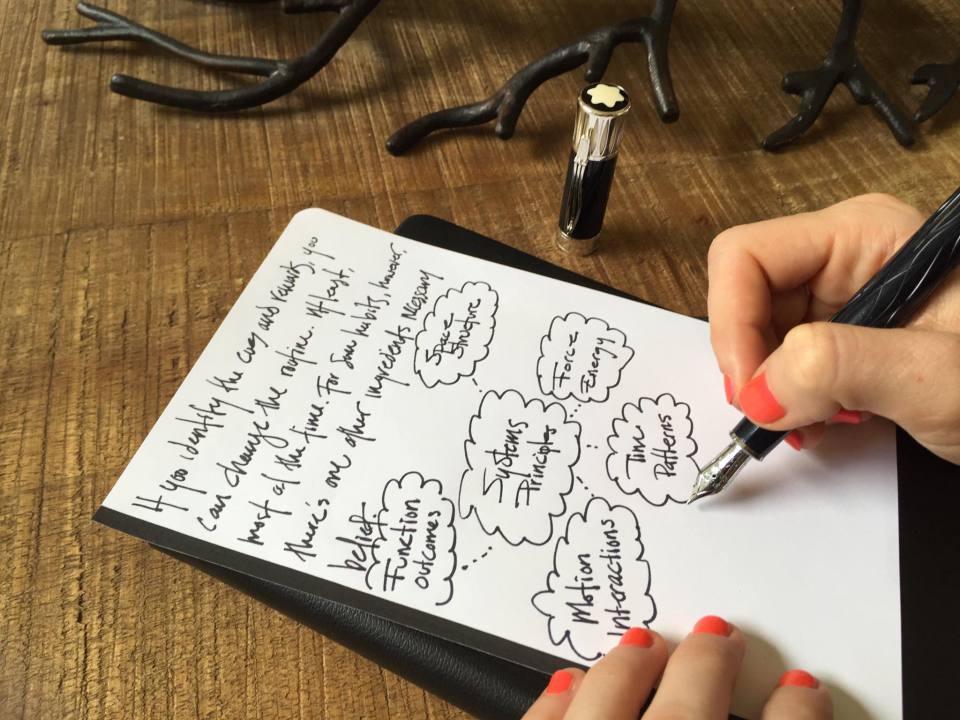 If you identify the cues and rewards, you
can change the routine. At least,
most of the time. For some habits, however,
there's one other ingredients necessary
belief.
Space
Structure
Force
Energy
Systems
Principles
Time
Patterns
Function
outcomes
Motion
Interactions